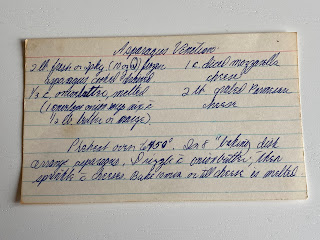 Asparagus Venetian
2 lb. fresh or 2 pkg (10 oz) frozen
asparagus, cooked & drained
1/3 c. onion butter, melted
(1 envelope onion soup mix &
1/2 lb. butter or marge).
1 c. diced mozzarella
cheese
2 tbl. grated Parmesan
cheese
Preheat oven to 450°. In 8" baking dish
arrange asparagus. Drizzle c̄ onion butter; then
sprinkle c̄ cheeses. Bake or till cheese is melted